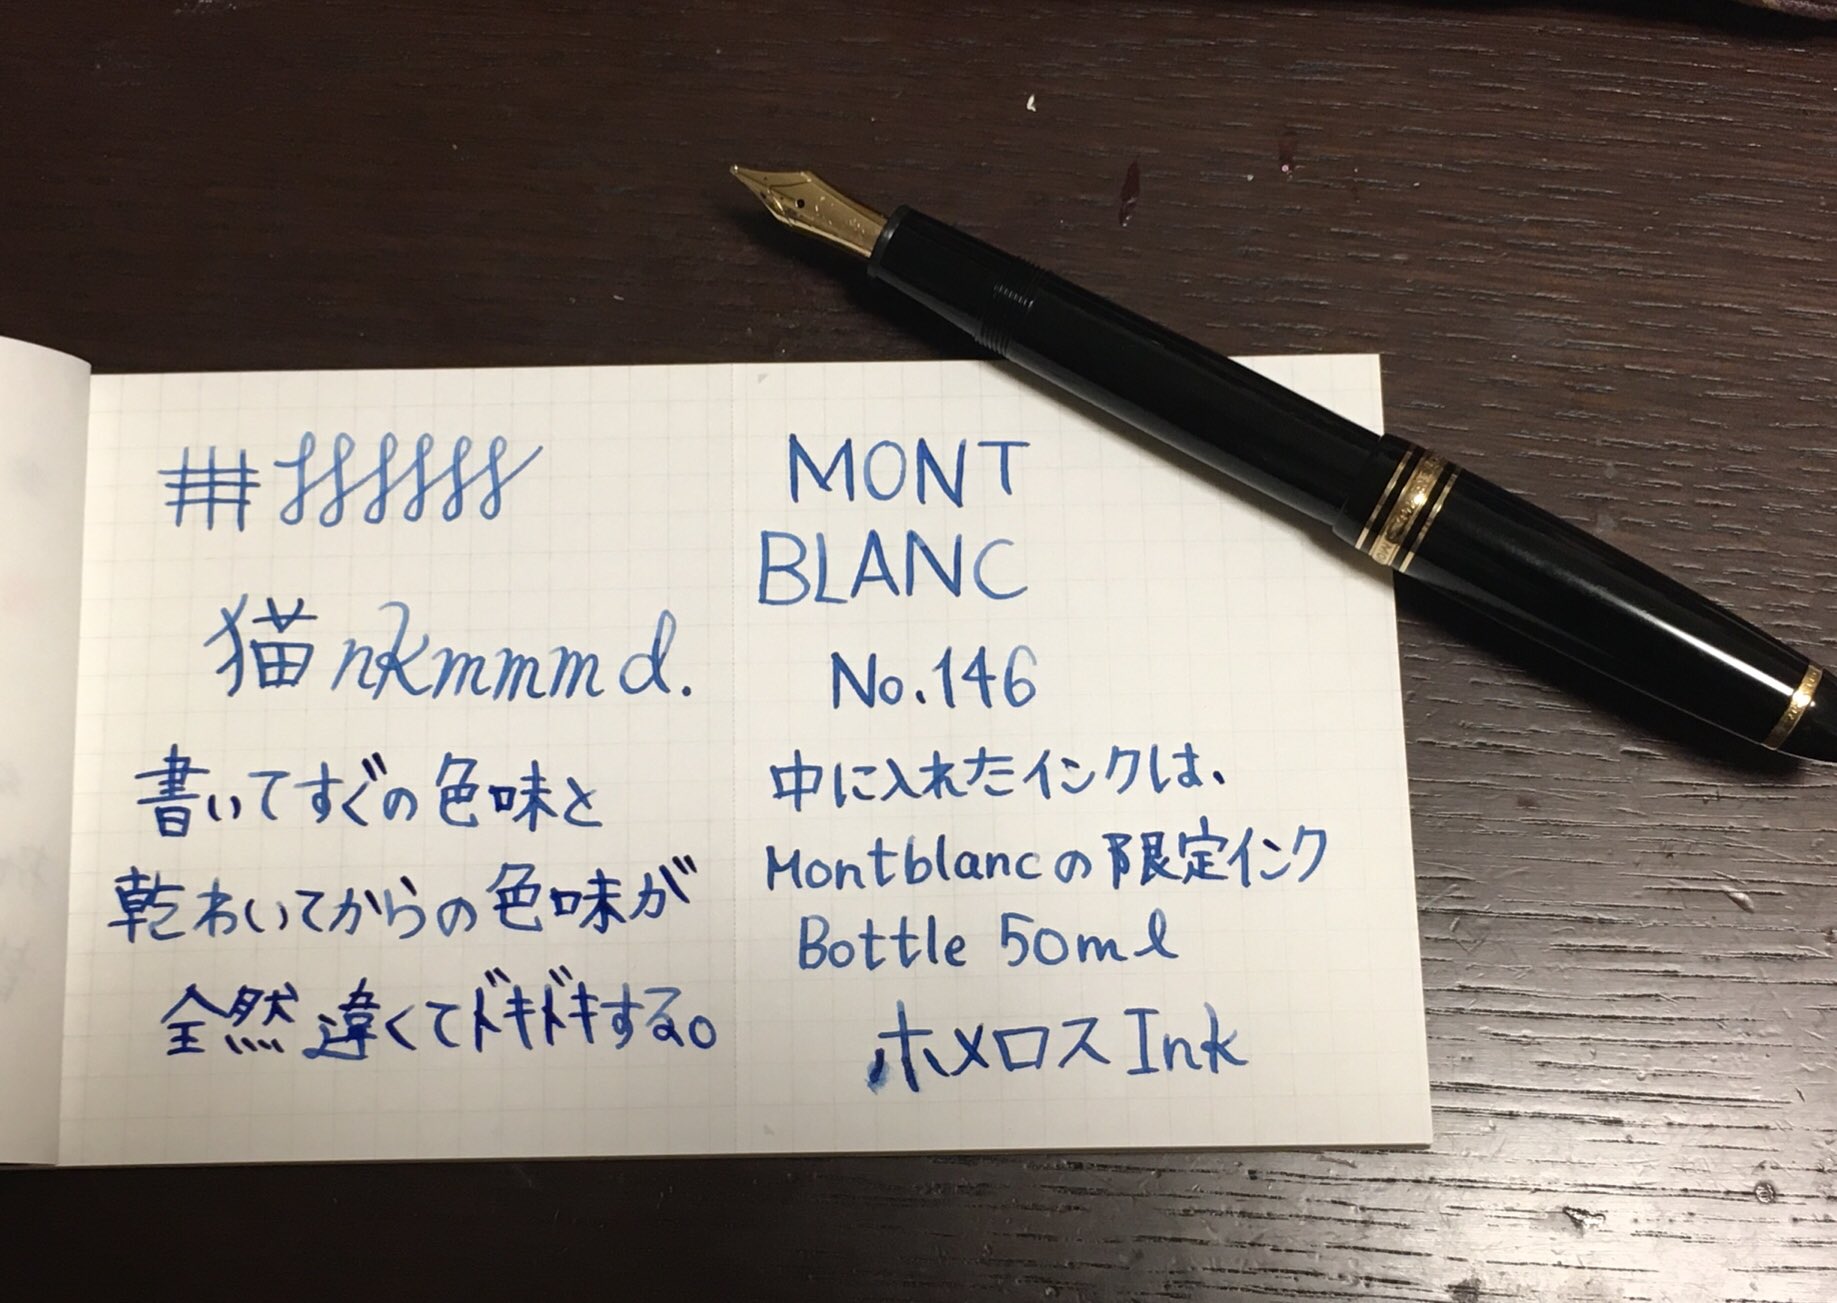 猫 nkmmmd.
書いてすぐの色味と
乾わいてからの色味が
全然違くてドキドキする。
MONT
BLANC
No.146
中に入れたインクは、
Montblancの限定インク
Bottle 50ml
ホメロス Ink